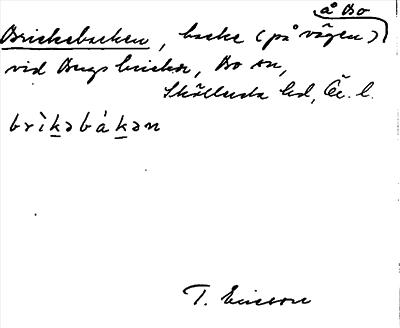 å Bo
Brickebacken, backe (på vägen)
vid Bergsbrickor, Bo sn,
Sköllersta hd, Ör. l.
brìkəbákən
T. Ericsson